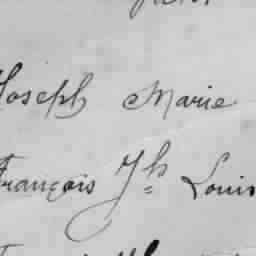 Joseph Marie
François Jh Louis